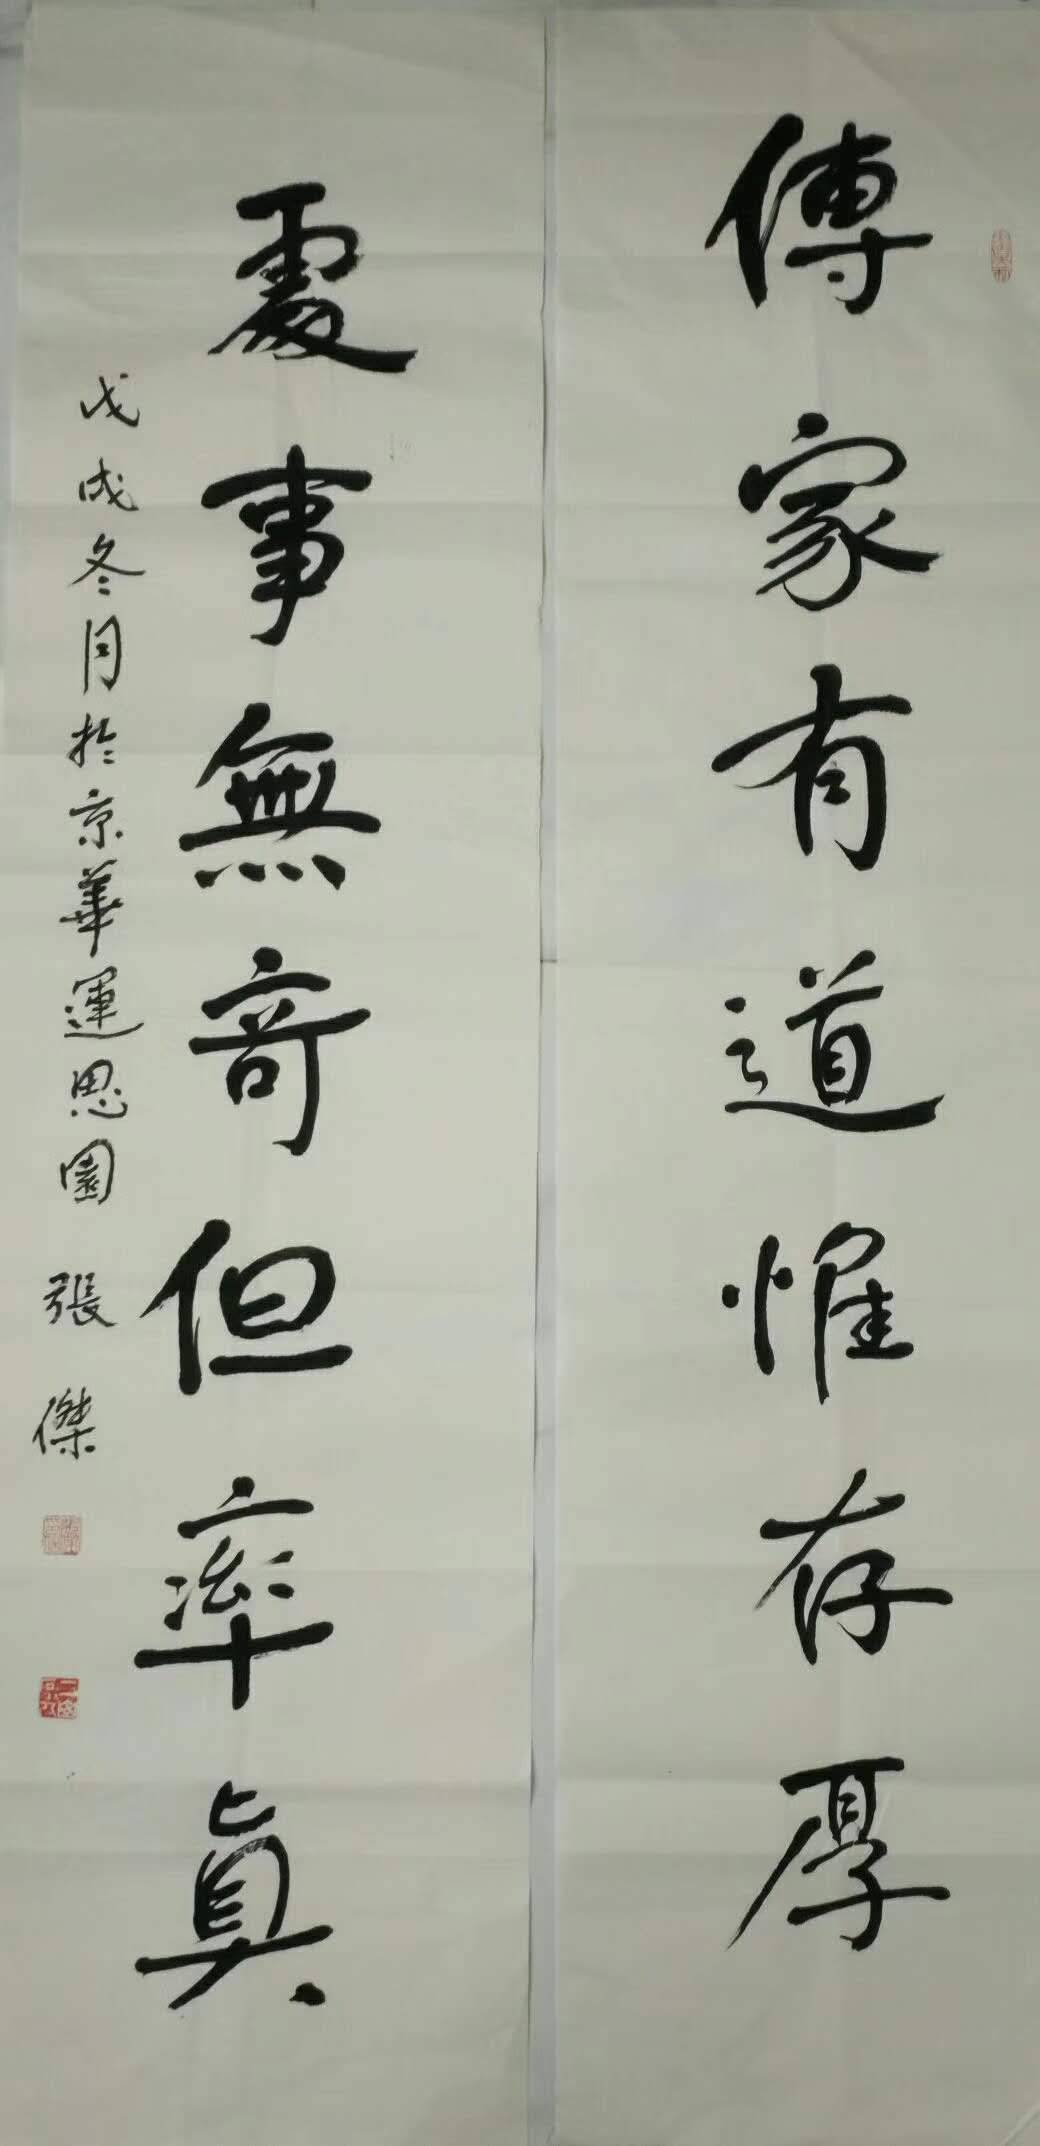 傳家有道惟存厚
處事無奇但率真
戊戌冬月於京華運思園 張傑